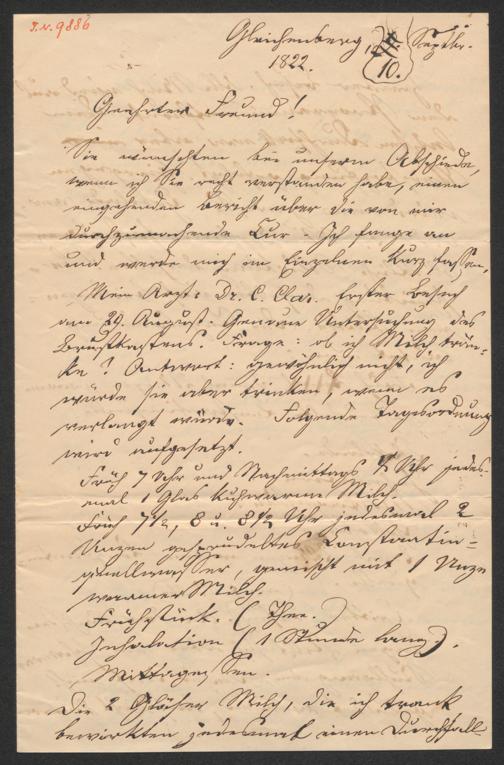 I.N. 9886
Gleichenberg, Septbr.
10.
1822.
Geehrter Freund!
Sie wünschten bei unserm Abschiede,
wenn ich Sie recht verstanden habe, einen
eingehenden Bericht über die von mir
durchzumachende Cur. Ich fange an
und werde mich im Einzelnen kurz fassen.
Mein Arzt: Dr. C. Clar. Erster Besuch
am 29. August. Genaue Untersuchung des
Brustkastens. Frage: ob ich Milch trän-
ke? Antwort: gewöhnlich nicht, ich
würde sie aber trinken, wenn es
verlangt würde. Folgende Tagesordnung
wird aufgesetzt.
Früh 7 Uhr und Nachmittags Uhr jedes-
mal 1 Glas kuhwarme Milch.
Früh 7½, 8 u. 8½ Uhr jedesmal 2
Unzen gesprudeltes Constantin-
quellwasser, gemischt mit 1 Unze
warmer Milch.
Frühstück. (Thee.)
Inhalation (1 Stunde lang).
Mittagessen.
Die 2 Gläser Milch, die ich trank
bewirkten jedesmal einen Durchfall